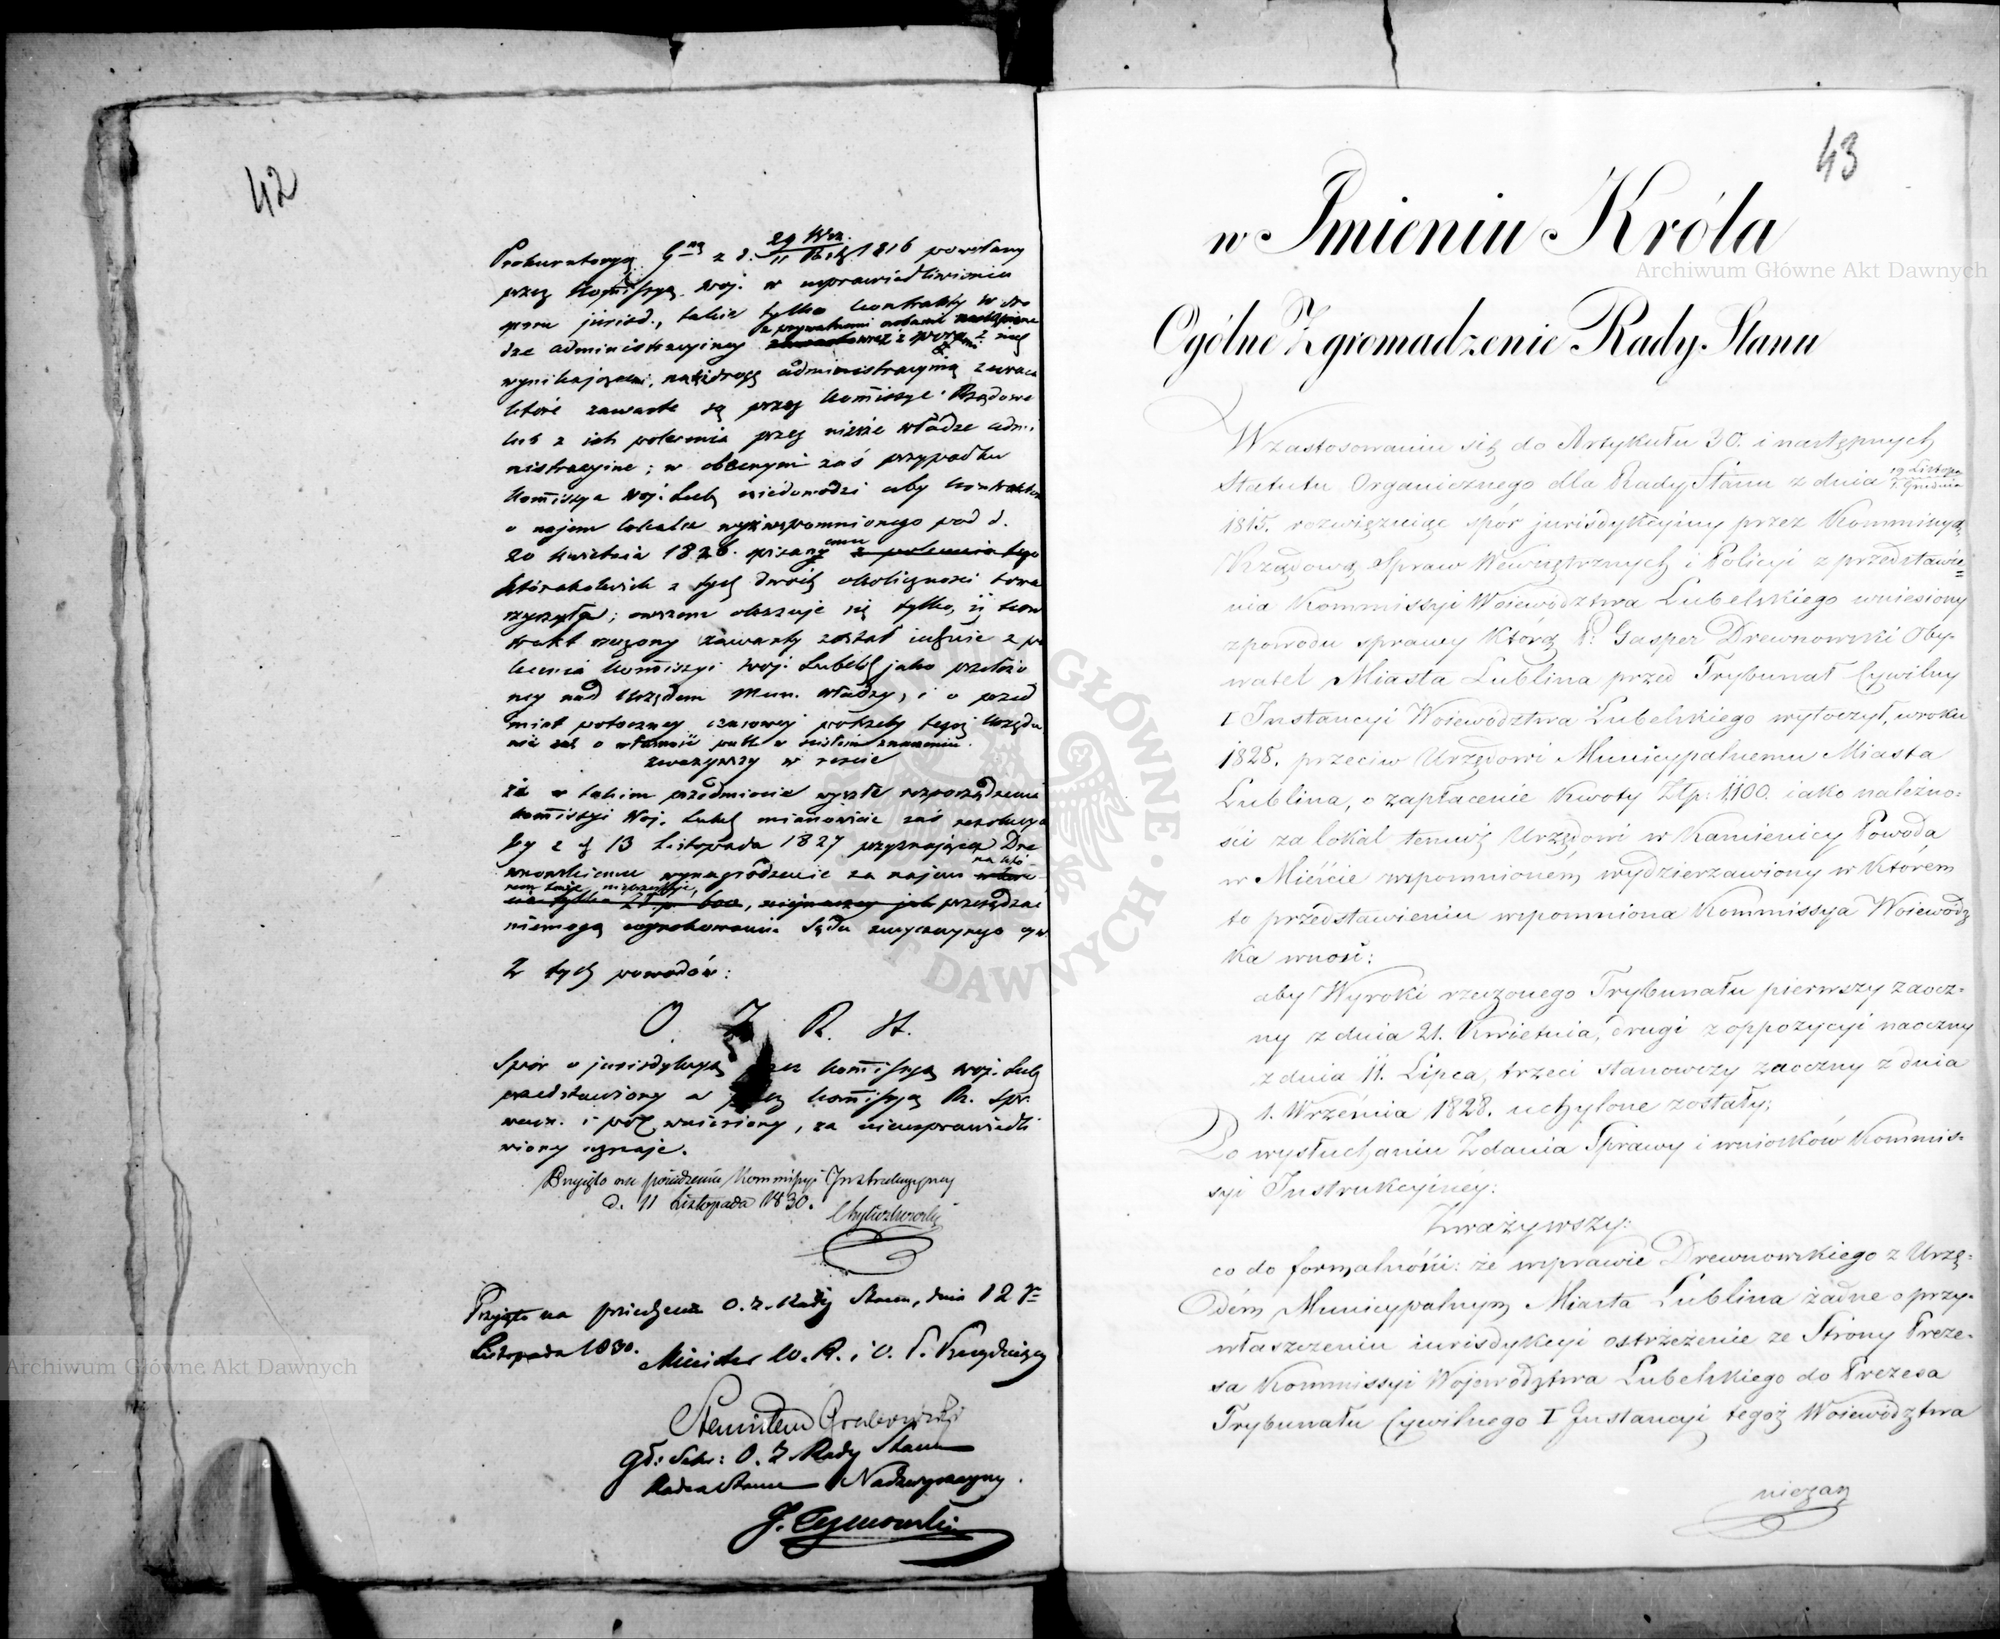 42
Prokuratoryą G<sup>ną</sup> z d. 1816 powołany
przez Kommissyą Woj. w usprawiedliwieniu
sporu jurisd., takie tylko kontrakty w dro
z prywatnemi osobami
dze administracyiney z nich
wynikającemi, na drogę administracyiną zwraca
które zawarte są przez Kommissye Rządowe
lub z ich polecenia przez niższe władze admi
nistracyine; w obecnym zaś przypadku
Kommissya Woj. Lub. niedowodzi aby kontraktow
o najem lokalu wyżwspomnionego pod d.
20 Kwietnia 1826. pisany z polecenia tego
którakolwiek z tych dwóch okoliczności towa
rzyszyła; owszem okazuje się tylko, iż kon
trakt rzeczony zawarty został iedynie z po
lecenia Kommissyi Woj. Lubel. jako przełożo
ney nad Urzędem Mun. władzy, i o przed
miot potoczney czasowey potrzeby tegoż Urzędu
nie zaś o własność publ. w ścisłém znaczeniu.
zważywszy w reście
że w takim przedmiocie wyszłe rozporządzenia
Kommissyi Woj. Lubel. mianowicie zaś rezolucya
Jey z d. 13 Listopada 1827 przyznająca Dre
wnowskiemu wynagrodzenie za najem
przesądzać
niemogą wyrokowaniu Sądu zwyczaynego cyw.
Z tych powodów:
O. Z. R. St.
Spór o jurisdykcyą przez Kommissyą Woj. Lub.
przedstawiony a przez Kommissyą R. Spr.
wewn. i pol. wniesiony, za nieusprawiedli
wiony uznaje.
Przyięto na posiedzeniu Kommissyi Instrukcyyney
d. 11 Listopada 1830.
Przyięto na posiedzeniu O. Z. Rady Stanu, dnia 12 go
Listopada 1830.
Minister W. R. i O. P. Prezyduiący
Stanisław Grabowski
Gł: Sekr: O. Z. Rady Stanu
Radca Stanu Nadzwyczayny.
J. Tymowski
43
w Imieniu Króla
Ogólne Zgromadzenie Rady Stanu
W zastosowaniu się do Artykułu 30. i następnych
Statutu Organicznego dla Rady Stanu z dnia 19 Listopa / 1. Grudnia
1815. rozwiązuiąc spór jurisdykcyiny przez Kommissyą
Rządową Spraw Wewnętrznych i Policyi z przedstawie=
nia Kommissyi Woiewództwa Lubelskiego wniesiony
z powodu sprawy którą P. Gasper Drewnowski Oby-
watel Miasta Lublina przed Trybunał Cywilny
I Instancyi Woiewództwa Lubelskiego wytoczył, w roku
1828. przeciw Urzędowi Municypalnemu Miasta
Lublina, o zapłacenie kwoty Złp: 1,100. iako należno-
ści za lokal temuż Urzędowi w Kamienicy Powoda
w Mieście wspomnioném, wydzierzawiony w którém
to przedstawieniu wspomniona Kommissya Woiewódz
ka wnosi:
aby Wyroki rzeczonego Trybunału pierwszy zaocz-
ny z dnia 21. Kwietnia, drugi z oppozycyi naoczny
z dnia 11. Lipca, trzeci stanowczy zaoczny z dnia
1. Września 1828. uchylone zostały;
Po wysłuchaniu Zdania Sprawy i wniosków Kommis-
syi Instrukcyiney:
Zważywszy:
co do formalności: że w sprawie Drewnowskiego z Urzę-
dem Municypalnym Miasta Lublina żadne o przy-
właszczeniu iurisdykcyi ostrzeżenie ze Strony Preze-
sa Kommissyi Województwa Lubelskiego do Prezesa
Trybunału Cywilnego I Instancyi tegoż Woiewództwa
niezasz
Archiwum Główne Akt Dawnych
Archiwum Główne Akt Dawnych